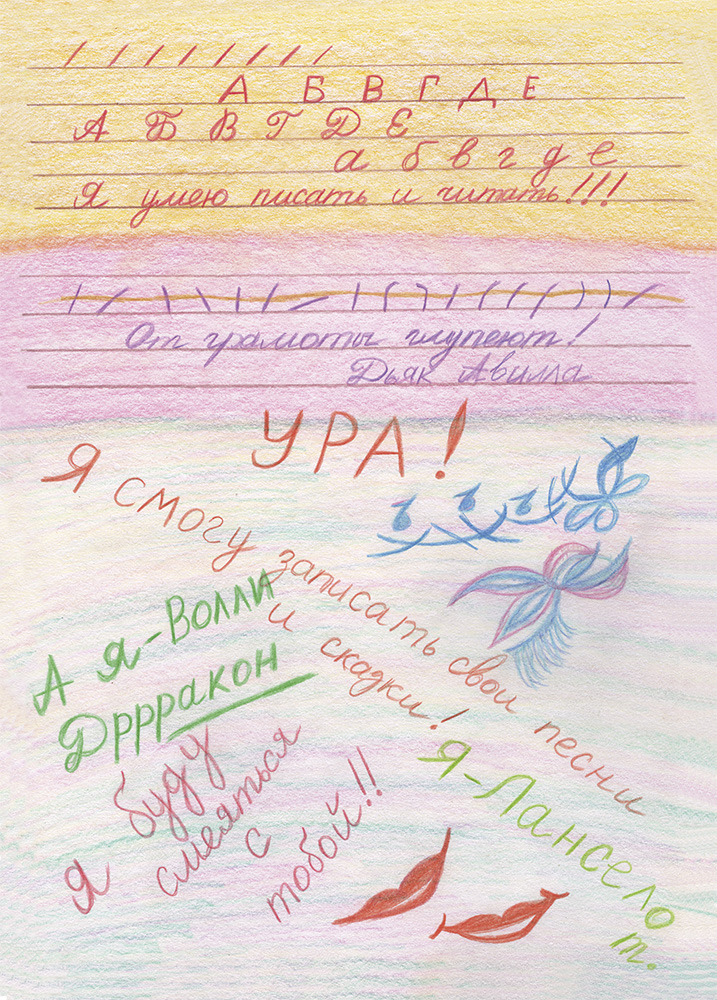 А Б В Г Д Е
А Б В Г Д Е
а б в г д е
Я умею писать и читать!!!
От грамоты глупеют!
Дьяк Авилла
УРА!
Я смогу записать свои песни
и скадки!
А я - Волли
Дррракон
Я буду
смеяться
с
тобой!!
Я - Лансело
т.